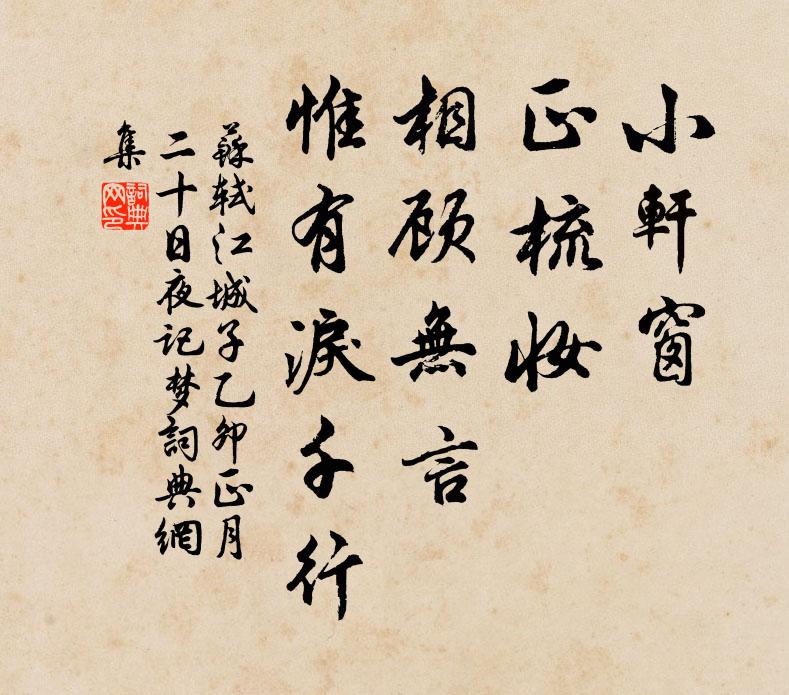 小軒窗
正梳妆
相顾無言
惟有淚千行
蘇軾江城子乙卯正月
二十日夜记梦詞典網
集
詞典
网印